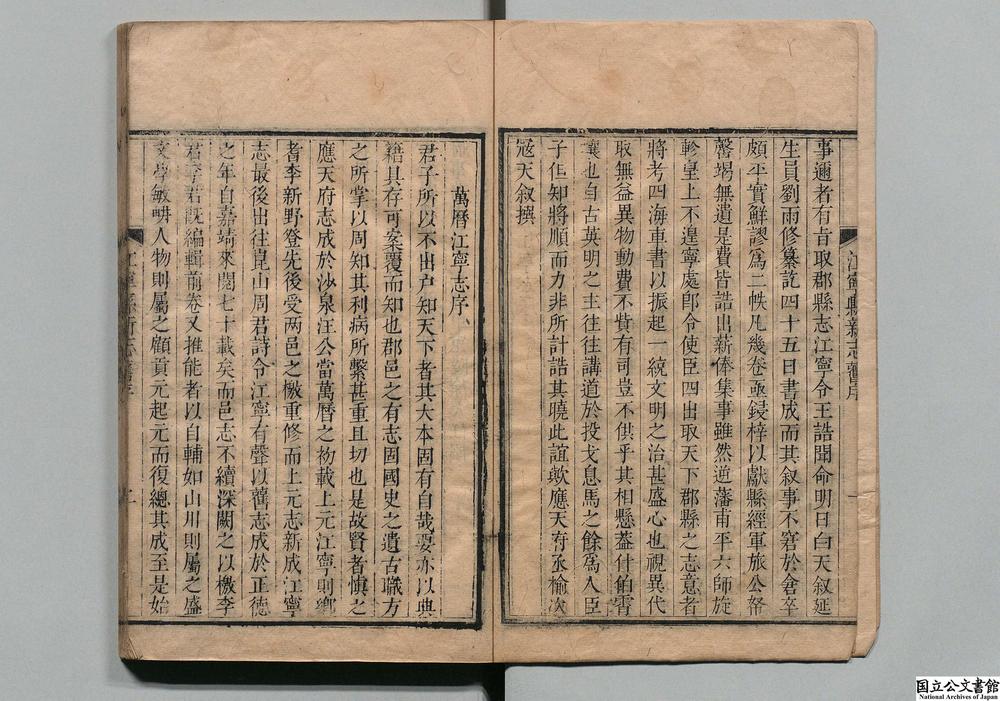 事邇者有旨取郡縣志江寧令王誥聞命明日白天叙延
生員劉雨修纂訖四十五日書成而其叙事不窘於倉卒
頗平實鮮謬爲二帙凡幾卷亟鋟梓以獻縣經軍旅公帑
罄竭無遺是費皆誥出薪俸集事雖然逆藩甫平六師旋
軫皇上不遑寧處卽令使臣四出取天下郡縣之志意者
將考四海車書以振起一統文明之治甚盛心也視異代
取無益異物動費不貲有司豈不供乎其相懸葢什伯霄
壤也自古英明之主往往講道於投戈息馬之餘爲人臣
子但知將順而力非所計誥其曉此誼歟應天府丞榆次
寇天叙撰
江寧縣新志舊序
一
萬曆江寧志序
君子所以不出户知天下者其大本固有自哉要亦以典
籍具存可案覆而知也郡邑之有志固國史之遺古職方
之所掌以周知其利病所繫甚重且切也是故賢者慎之
應天府志成於沙泉汪公當萬曆之初載上元江寧則鄉
者李新野登先後受两邑之檄重修而上元志新成江寧
志最後出往崑山周君詩令江寧有聲以舊志成於正德
之年自嘉靖來閱七十載矣而邑志不續深闕之以檄李
君李君旣編輯前卷又推能者以自輔如山川則屬之盛
文學敏畊人物則屬之顧貢元起元而復總其成至是始
江寧縣新志舊序
二
国立公文書館
National Archives of Japan